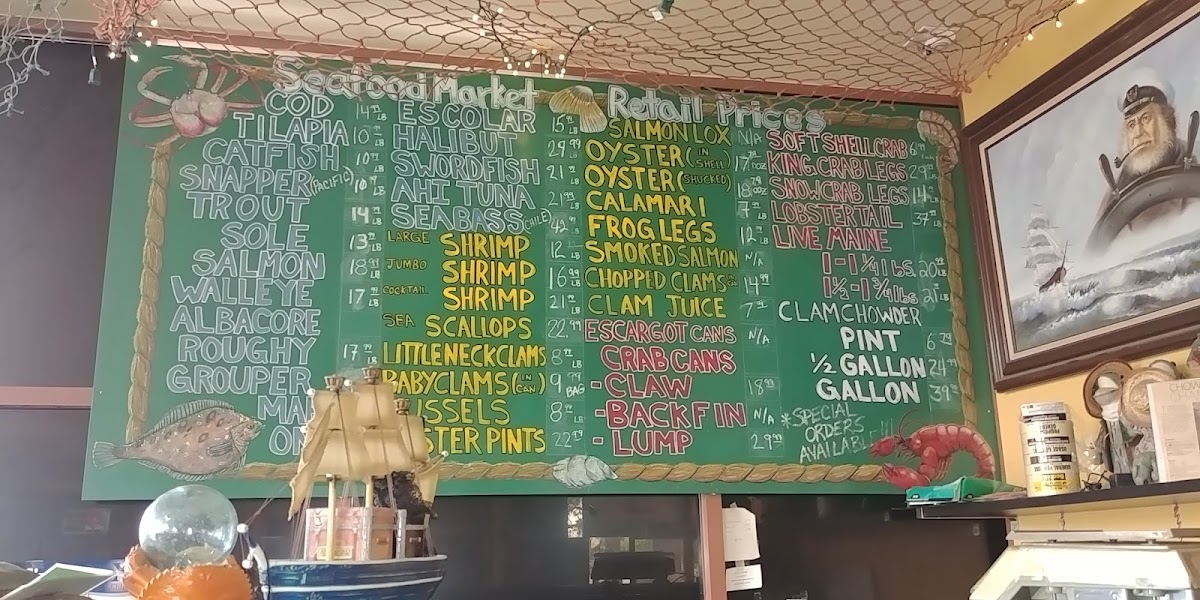 Seafood Market Retail Prices
COD 14 99 LB
TILAPIA 10 LB
CATFISH 10 99 LB
SNAPPER (PACIFIC) 10 99 LB
TROUT 14 99 LB
SOLE 13 LB
SALMON 18 99 LB
WALLEYE 17 LB
ALBACORE
ROUGHY 17 99 LB
GROUPER
ESCOLAR 15 LB
HALIBUT 29 99 LB
SWORDFISH 21 LB
AHI TUNA 21 LB
SEABASS (CHILE) 42 LB
LARGE SHRIMP 12 LB
JUMBO SHRIMP 16 99 LB
COCKTAIL SHRIMP 21 LB
SEA SCALLOPS 22.99
LITTLENECK CLAMS 8 99 LB
BABY CLAMS (IN CAN) 9 99 BAG
USSELS 8 LB
STER PINTS 22 99
SALMON LOX N/A
OYSTER (IN SHELL) 17 DOZ
OYSTER (SHUCKED) 18 DOZ
CALAMARI 7 LB
FROG LEGS 12 LB
SMOKED SALMON N/A
CHOPPED CLAMS 14 99
CLAM JUICE 7
ESCARGOT CANS N/A
CRAB CANS
- CLAW 18 99
- BACKFIN N/A
- LUMP 29 99
SOFTSHELL CRAB 6
KING CRAB LEGS 29
SNOW CRAB LEGS 14 LB
LOBSTER TAIL 37 LB
LIVE MAINE
1 - 1 1/4 lbs. 20 LB
1 1/2 - 1 3/4 lbs 21 LB
CLAM CHOWDER
PINT 6.79
1/2 GALLON 24 99
GALLON 39
*SPECIAL
ORDERS
AVAILABLE!!!